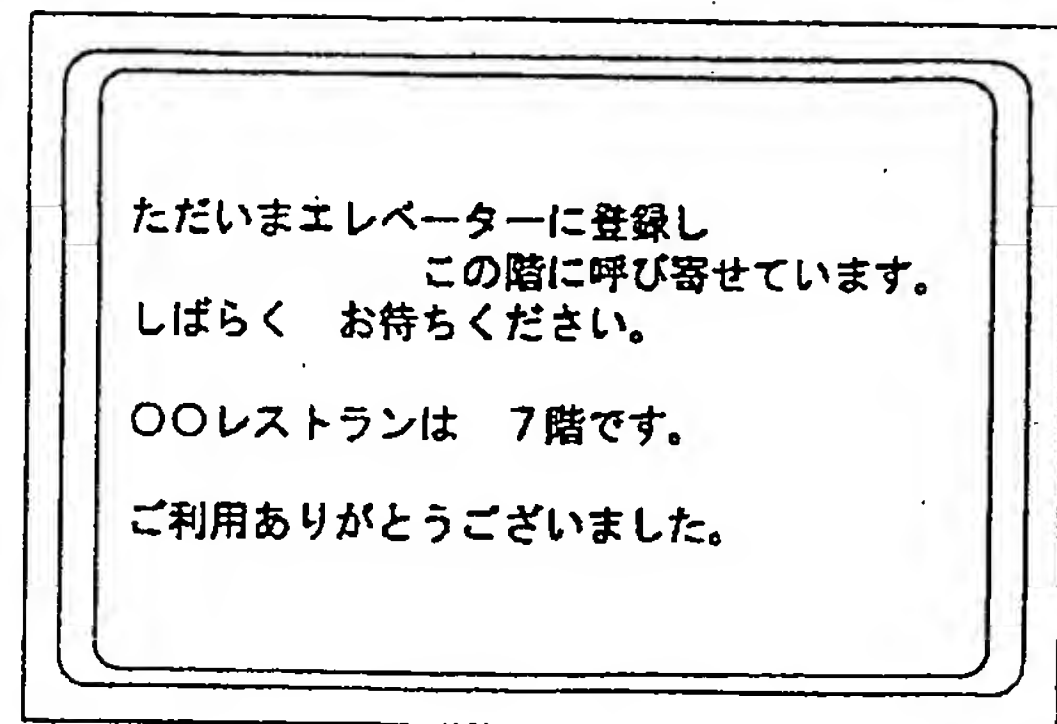 ただいまエレベーターに登録し
この階に呼び寄せています。
しばらく　お待ちください。
〇〇レストランは　7階です。
ご利用ありがとうございました。